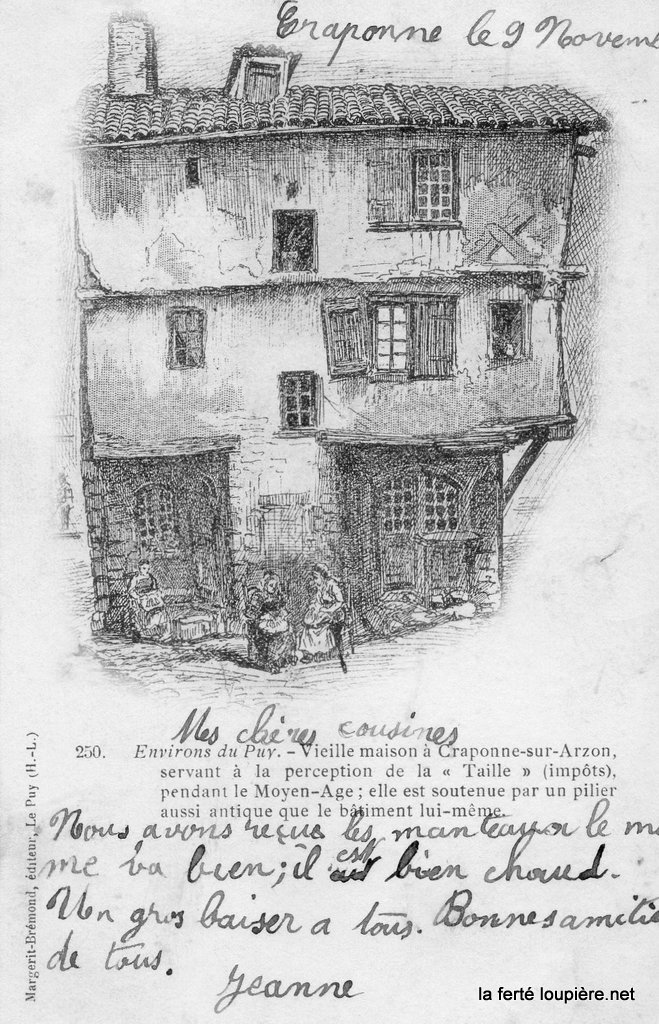 Craponne le 9 Novem
Mes chères cousines
250. Environs du Puy. - Vieille maison à Craponne-sur-Arzon,
servant à la perception de la « Taille » (impôts),
pendant le Moyen-Age ; elle est soutenue par un pilier
aussi antique que le bâtiment lui-même.
Nous avons reçus les manteaux le m
me va bien; il est bien chaud.
Un gros baiser a tous. Bonnes amitié
de tous.
Jeanne
Margerit-Brémond, éditeur, Le Puy (H.-L.)
la ferté loupière.net